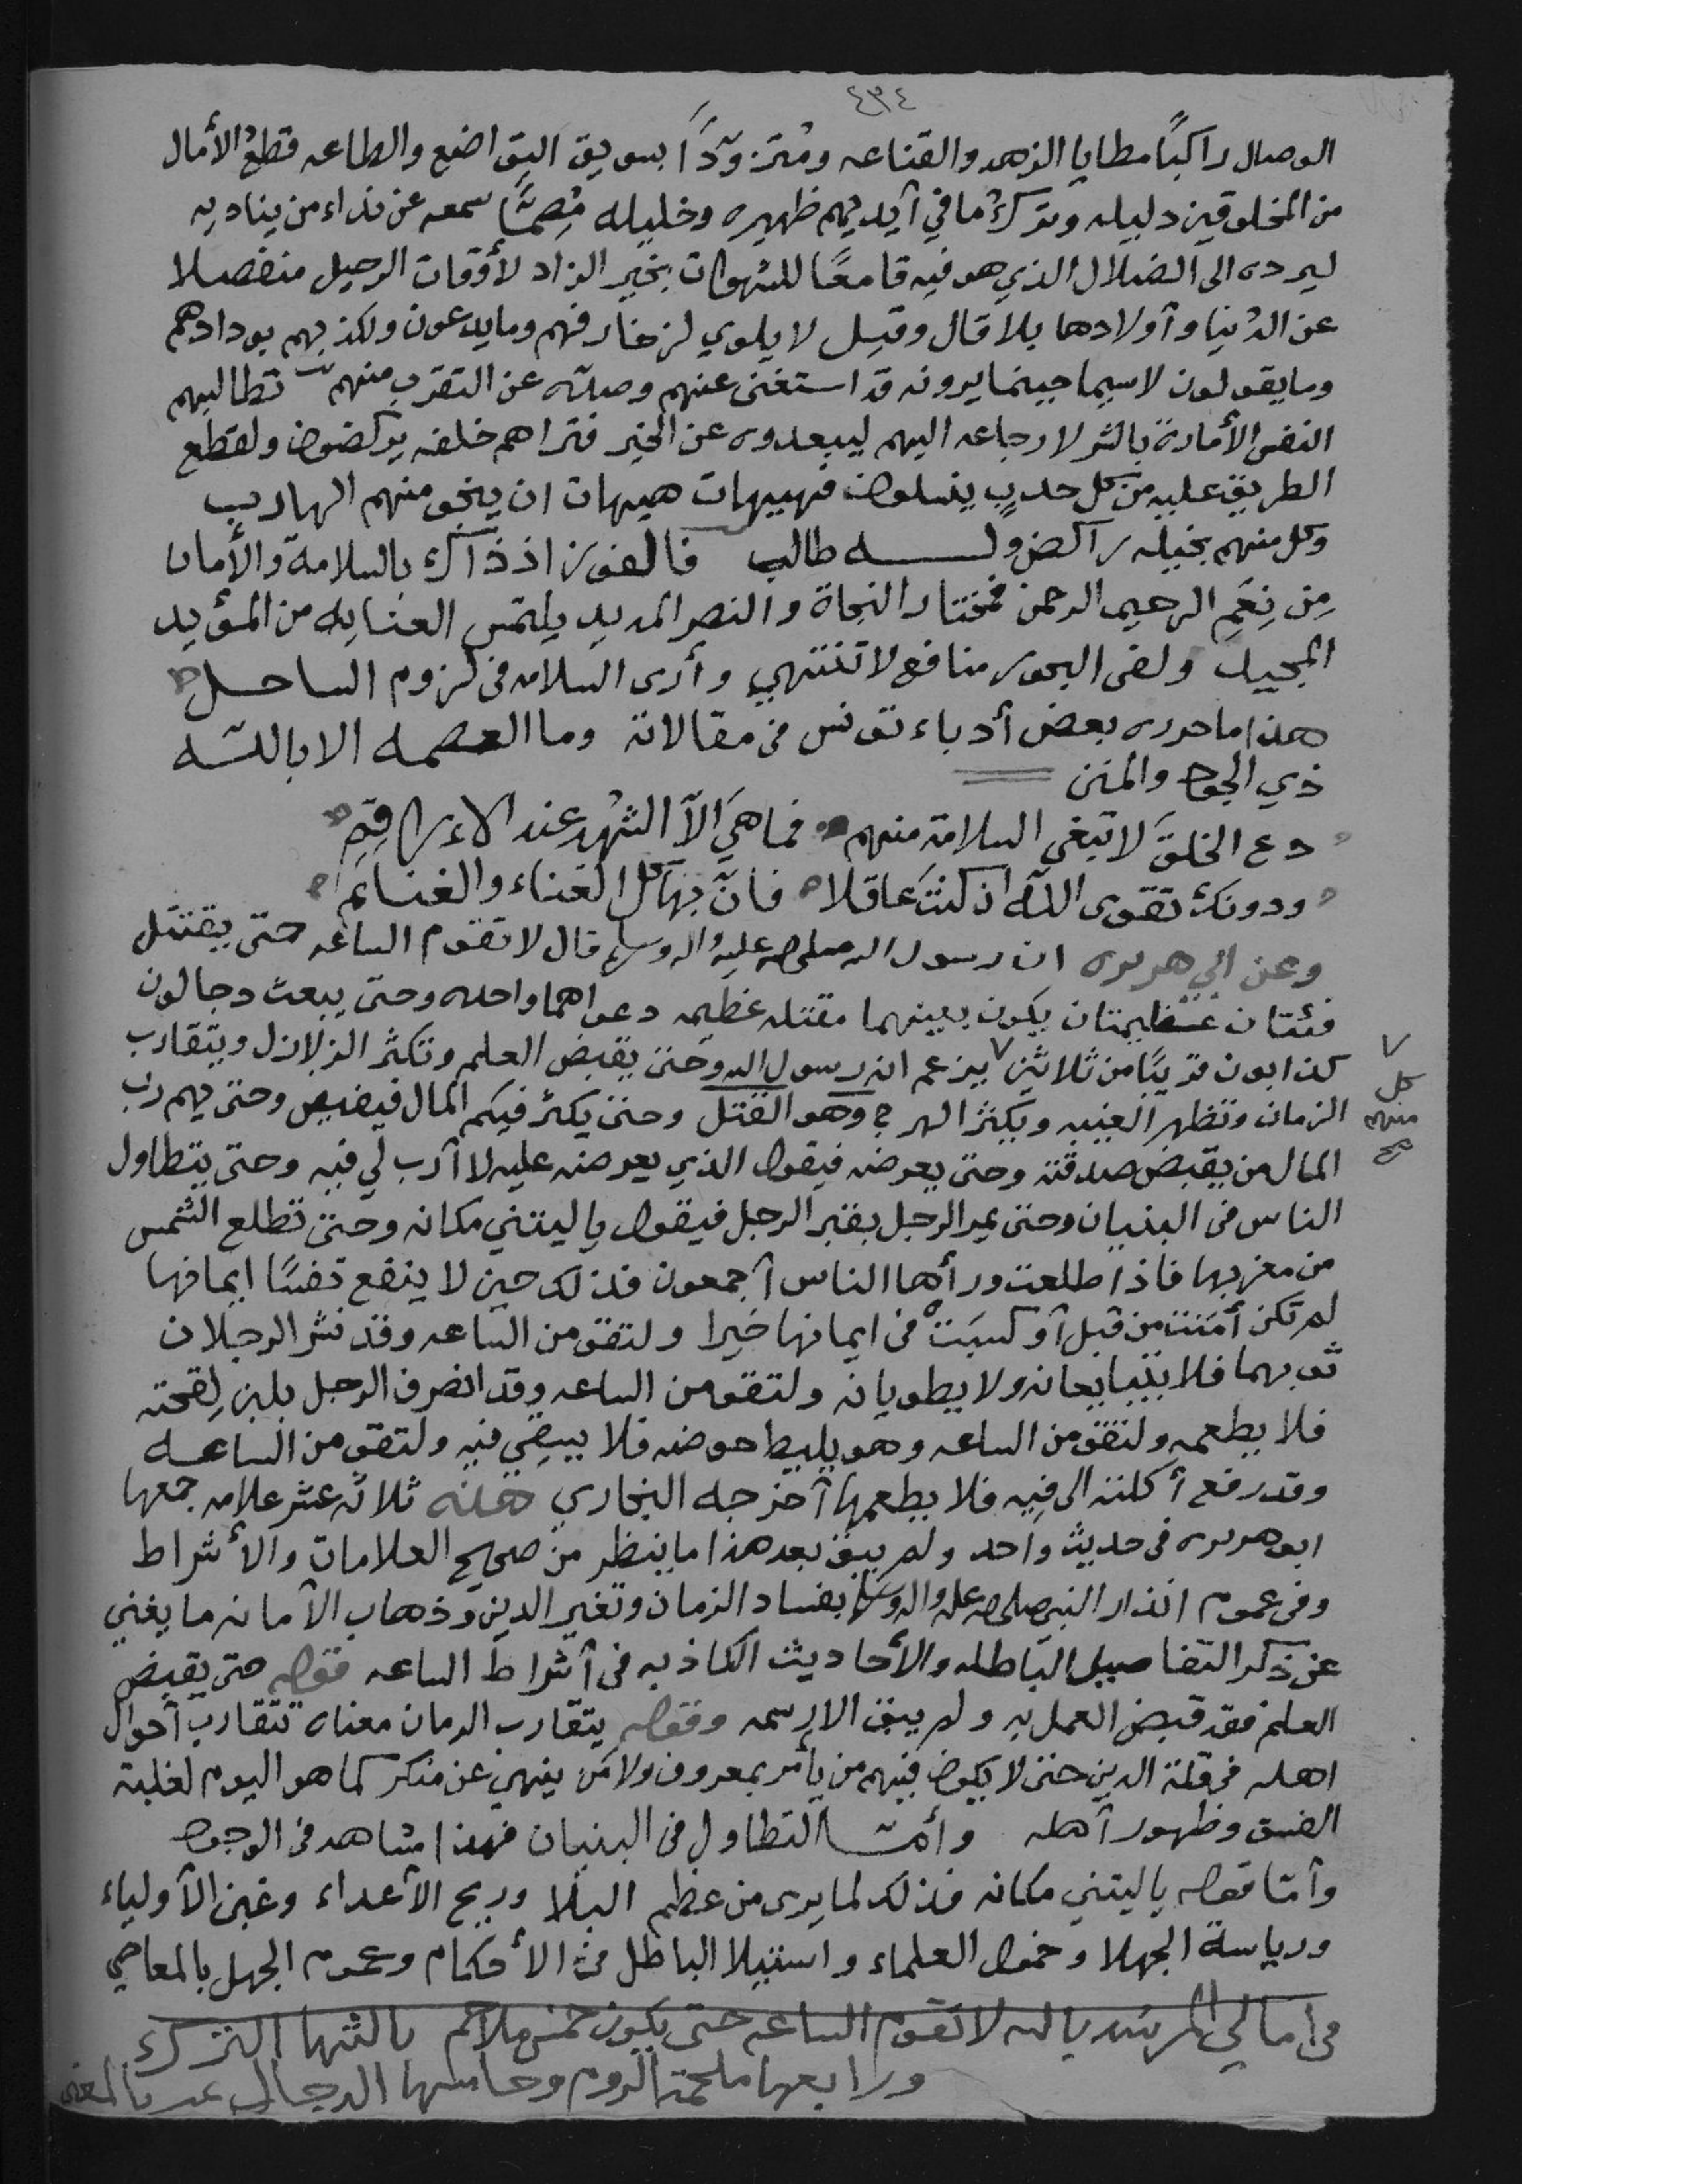 ٤٣٤
الوصال راكبًا مطايا الزهد والقناعه ومُتزوّدًا بسويق التواضع والطاعه قطعُ الأمال
من المخلوقين دليله وتركُ ما في أيديهم ظهيره وخليله مُصِمًّا سمعه عن نداء من يناديه
ليرده الى الضلال الذي هو فيه قامعًا للشهوات بخير الزاد لأوقات الرحيل منفصلا
عن الدُنيا وأولادها بلا قال وقيل لا يلوي لزخارفهم وما يدعون ولكذبهم بودادهم
وما يقولون لاسيما حينما يرونه قد استغنى عنهم وصدّه عن التقرّب منهم تطالبهم
النفس الأمارة بالشر لارجاعه اليهم ليبعدوه عن الخير فتراهم خلفه يركضون ولقطع
الطريق عليه من كل حدبٍ ينسلون فهيهات هيهات ان ينجو منهم الهارب
وكل منهم بخيله راكض وله طالب فالفوز اذ ذاك بالسلامة والأمان
مِن نِعَمِ الرحيم الرحمن فمختار النجاة والنصر المديد يلتمس العنايه من المؤيد
المجيد ولفى البحور منافع لا تنتهي وأرى السلامه في لزوم الساحل
هذا ما حرره بعض أدباء تونس في مقالاته وما العصمه الا بالله
ذي الجود والمنن
دع الخلقَ لا تبغي السلامة منهم فما هيَ الّا الشهْد عند الاراقِمِ
ودونك تقوى الله ان كنتَ عاقلا فانّ بها كل الغناء والغنائم
وعن ابي هريره ان رسول الله صلى الله عليه واله وسلم قال لا تقوم الساعه حتى يقتتل
فئتان عظيمتان يكون بينهما مقتله عظيمه دعواهما واحده وحتى يبعث دجالون
كذابون قريبًا من ثلاثين ٧ يزعم انه رسول الله وحتى يقبض العلم وتكثر الزلازل ويتقارب
٧ كل منهم صح
الزمان وتظهر الفتن ويكثر الهرج وهو القتل وحتى يكثر فيكم المال فيفيض وحتى يهم ربّ
المال من يقبض صدقته وحتى يعرضه فيقول الذي يعرضه عليه لا أرب لي فيه وحتى يتطاول
الناس في البنيان وحتى يمر الرجل بقبر الرجل فيقول يا ليتني مكانه وحتى تطلع الشمس
من مغربها فاذا طلعت ورأها الناس أجمعون فذلك حين لا ينفع نفسًا ايمانها
لم تكن أمنت من قبل أو كسبَتْ في ايمانها خيرا ولتقومن الساعه وقد نشر الرجلان
ثوبهما فلا يتبايعانه ولا يطويانه ولتقومن الساعه وقد انصرف الرجل بلبن لِقحته
فلا يطعمه ولتقومن الساعه وهو يليط حوضه فلا يسقِي فيه ولتقومن الساعه
وقد رفع أكلته الى فِيه فلا يطعمها أخرجه البخاري هذه ثلاثة عشر علامه جمعها
ابو هريره في حديث واحد ولم يبق بعد هذا ما ينظر من صحيح العلامات والأشراط
وفى عموم انذار النبي صلى الله عليه واله وسلم بفساد الزمان وتغير الدين وذهاب الأمانه ما يغني
عن ذكر التفاصيل الباطله والأحاديث الكاذبه في أشراط الساعه فقوله حتى يقبض
العلم فقد قبض العمل به ولم يبق الا رسمه وقوله يتقارب الزمان معناه تتقارب أحوال
اهله في قلة الدين حتى لا يكون فيهم من يأمر بمعروف ولا مَن ينهي عن منكر كما هو اليوم لغلبة
الفسق وظهور أهله وأمّا التطاول في البنيان فهذا مشاهد في الوجود
وأمّا قوله يا ليتني مكانه فذلك لما يرى من عظم البلا وربح الأعداء وغبن الأولياء
ورياسة الجهلا وخمول العلماء واستيلا الباطل في الأحكام وعموم الجهل بالمعاصي
في امالي المرشد بالله لا تقوم الساعه حتى يكون خمس ملاحم ثالثها الترك
ورابعها ملحمة الروم وخامسها الدجال بالمعنى